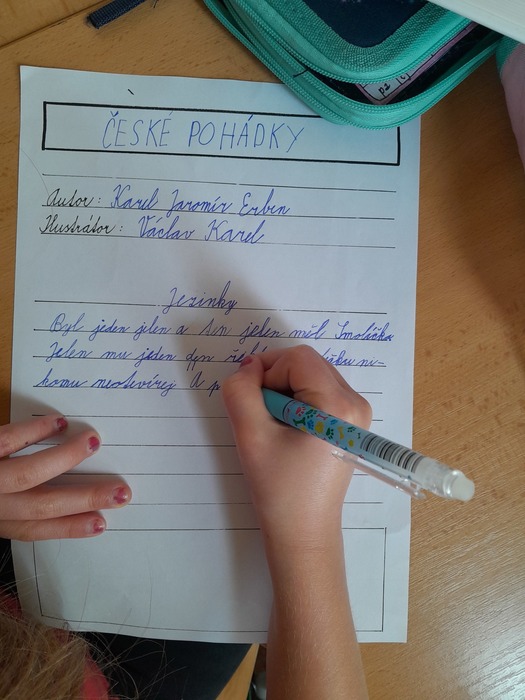 ČESKÉ POHÁDKY
Autor: Karel Jaromír Erben
Ilustrátor: Václav Karel
Jezinky
Byl jeden jelen a ten jelen měl Smolíčka
Jelen mu jeden den ni-
komu neotevírej A p